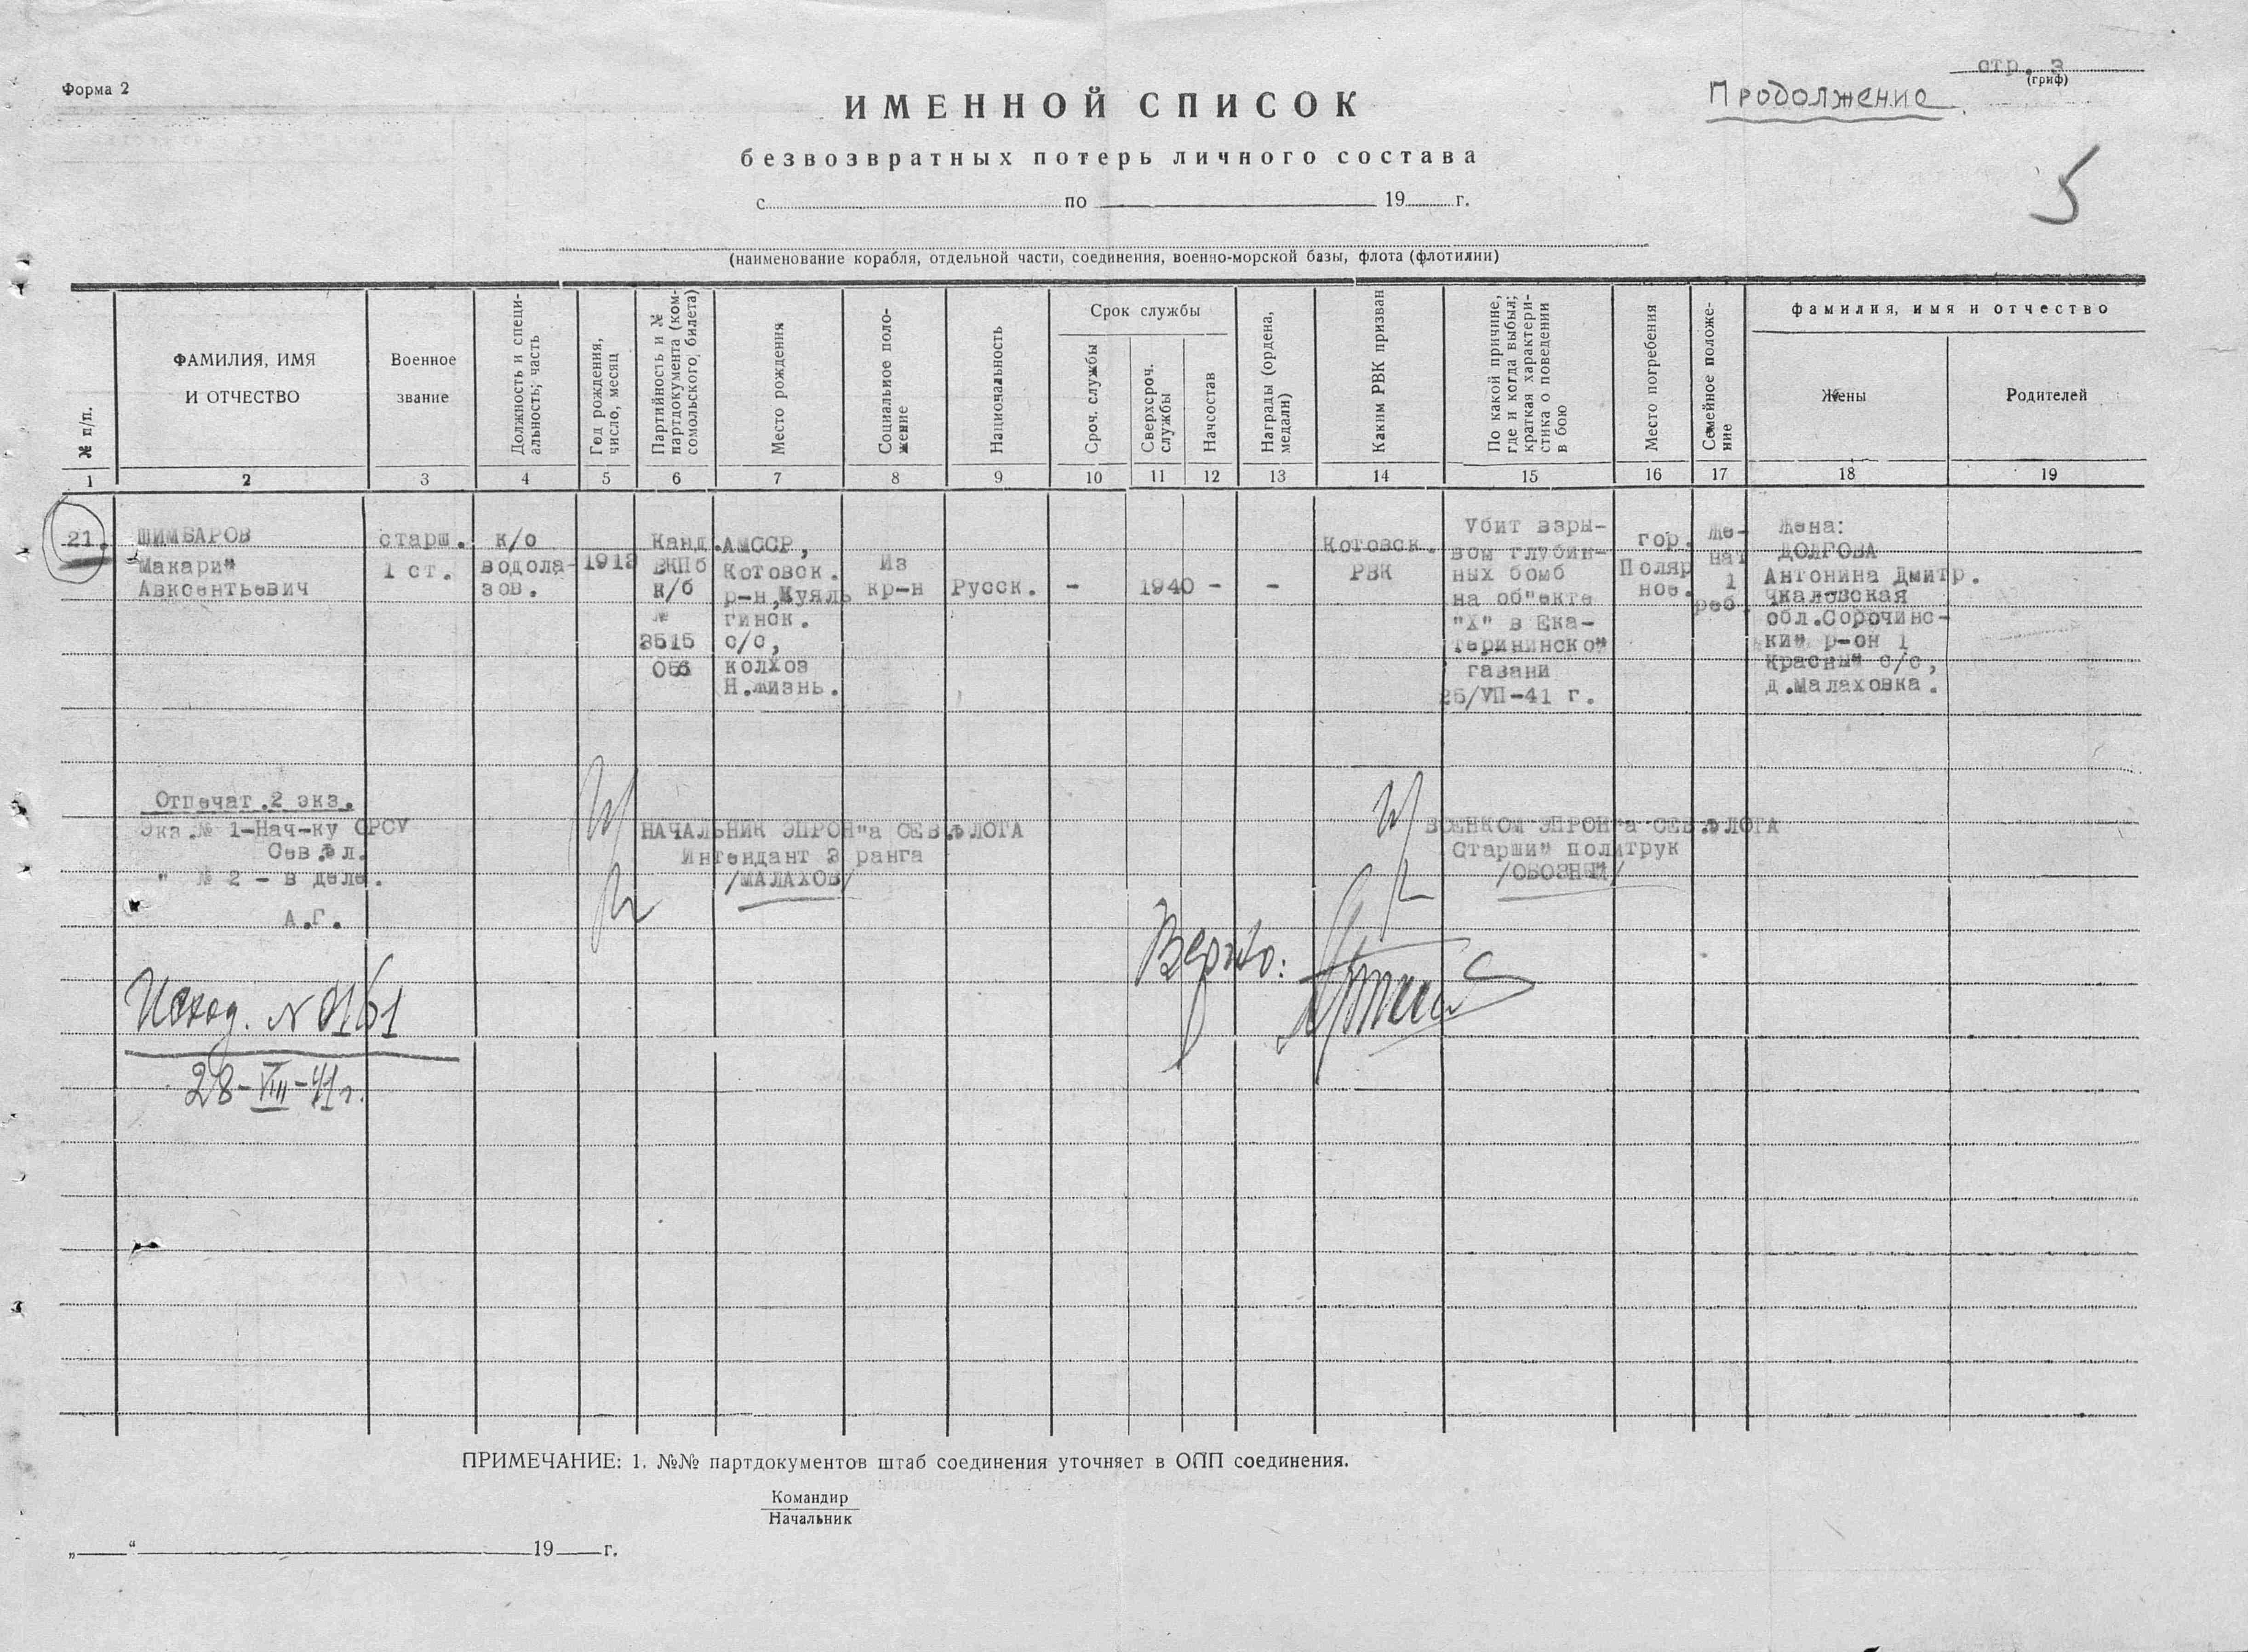 Форма 2
стр. 3
(гриф)
Продолжение
5
ИМЕННОЙ СПИСОК
безвозвратных потерь личного состава
с по 19 г.
(наименование корабля, отдельной части, соединения, военно-морской базы, флота (флотилии)
№ п/п.
ФАМИЛИЯ, ИМЯ
И ОТЧЕСТВО
Военное
звание
Должность и специ-
альность; часть
Год рождения,
число, месяц
Партийность и №
партдокумента (ком-
сомольского билета)
Место рождения
Социальное поло-
жение
Национальность
Срок службы
Сроч. службы
Сверхсроч.
службы
Начсостав
Награды (ордена,
медали)
Каким РВК призван
По какой причине,
где и когда выбыл;
краткая характери-
стика о поведении
в бою
Место погребения
Семейное положе-
ние
фамилия, имя и отчество
Жены
Родителей
1 2 3 4 5 6 7 8 9 10 11 12 13 14 15 16 17 18 19
21.
ШИМБАРОВ
Макари"
Авксентьевич
старш.
1 ст.
к/о
водола-
зов.
1913
Канд.
ВКПб
к/б
№
3515
056
АМССР,
Котовск.
р-н,Куяль
гинск.
с/с,
колхоз
Н.жизнь.
Из
кр-н
Русск.
-
1940
-
-
Котовск.
РВК
Убит взры-
вом глубин-
ных бомб
на об"екте
"Х" в Ека-
терининско"
гавани
25/УП-41 г.
гор.
Поляр
ное.
Же-
нат
1
реб.
Жена:
ДОЛГОВА
Антонина Дмитр.
Чкаловская
обл.Сорочинс-
ки" р-он 1
Красны" с/с,
д.Малаховка.
Отпечат.2 экз.
Экз.№ 1-Нач-ку ОРСУ
Сев.Фл.
" № 2 - в деле.
А.Г.
НАЧАЛЬНИК ЭПРОН"а СЕВ.ФЛОТА
Интендант 3 ранга
/МАЛАХОВ/
ВОЕНКОМ ЭПРОН"а СЕВ.ФЛОТА
Старши" политрук
/ОБОЗНЫЙ/
Верно:
Исход. № 0161
28-VIII-41г.
ПРИМЕЧАНИЕ: 1. №№ партдокументов штаб соединения уточняет в ОПП соединения.
Командир
Начальник
„ “ 19 г.